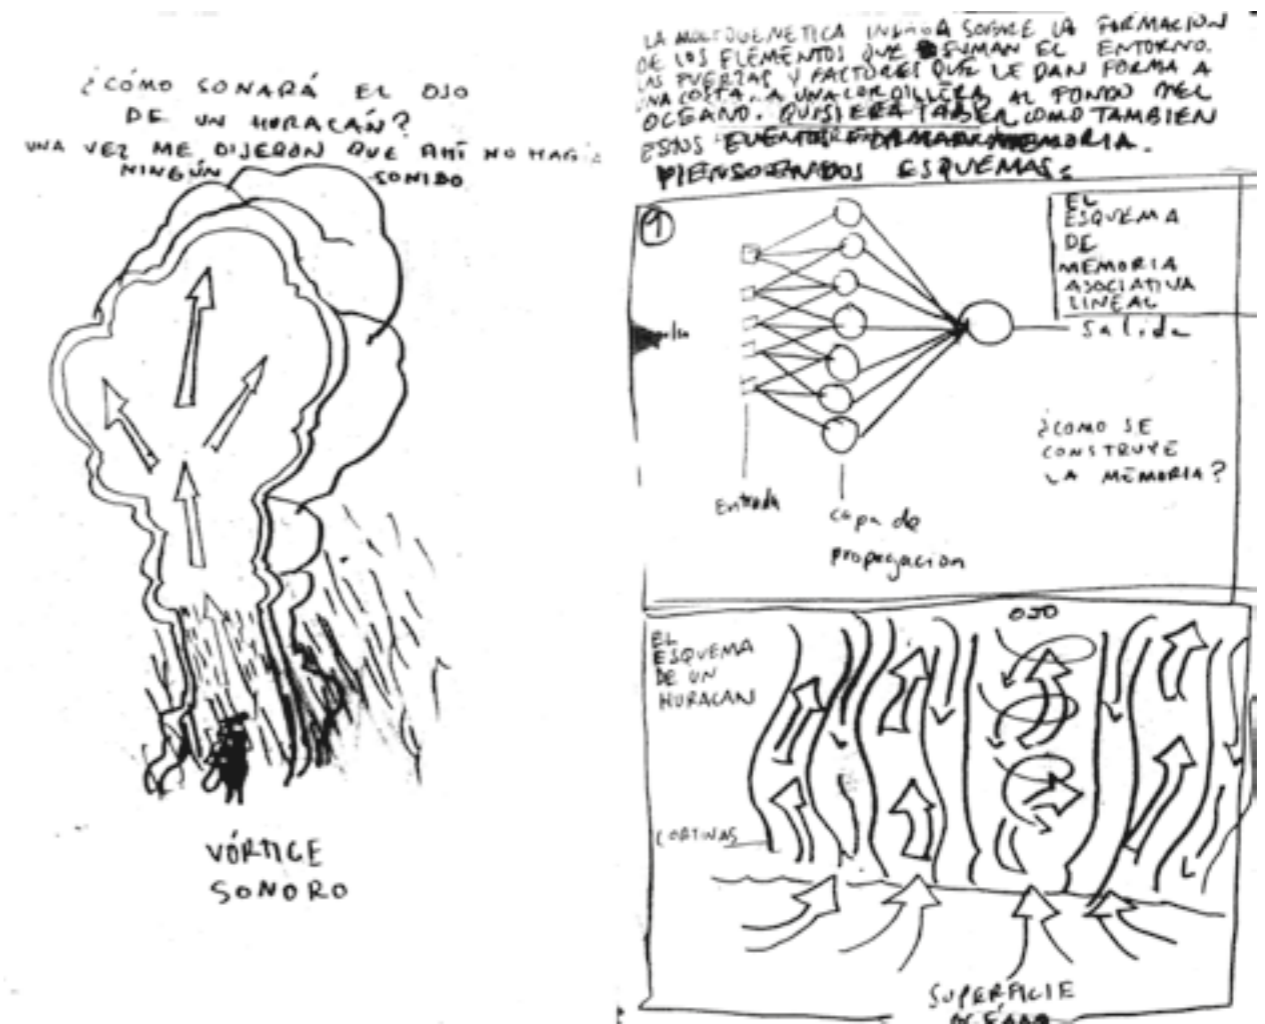 ¿CÓMO SONARÁ EL OJO
DE UN HURACÁN?
UNA VEZ ME DIJERON QUE AHÍ NO
NINGÚN SONIDO
VÓRTICE
SONORO
LA SOBRE LA FORMACION
DE LOS ELEMENTOS QUE SUMAN EL ENTORNO.
LAS FUERZAS Y FACTORES QUE LE DAN FORMA A
UNA COSTA, A UNA CORDILLERA AL FONDO DEL
OCÉANO. QUISIERA SABER COMO TAMBIEN
ESTOS EVENTOS MEMORIA.
PIENSO EN DOS ESQUEMAS:
1
EL
ESQUEMA
DE
MEMORIA
ASOCIATIVA
LINEAL
Salida
¿COMO SE
CONSTRUYE
LA MEMORIA?
Entrada
capa de
propagacion
OJO
EL
ESQUEMA
DE UN
HURACAN
CORTINAS
SUPERFICIE
OCÉANO